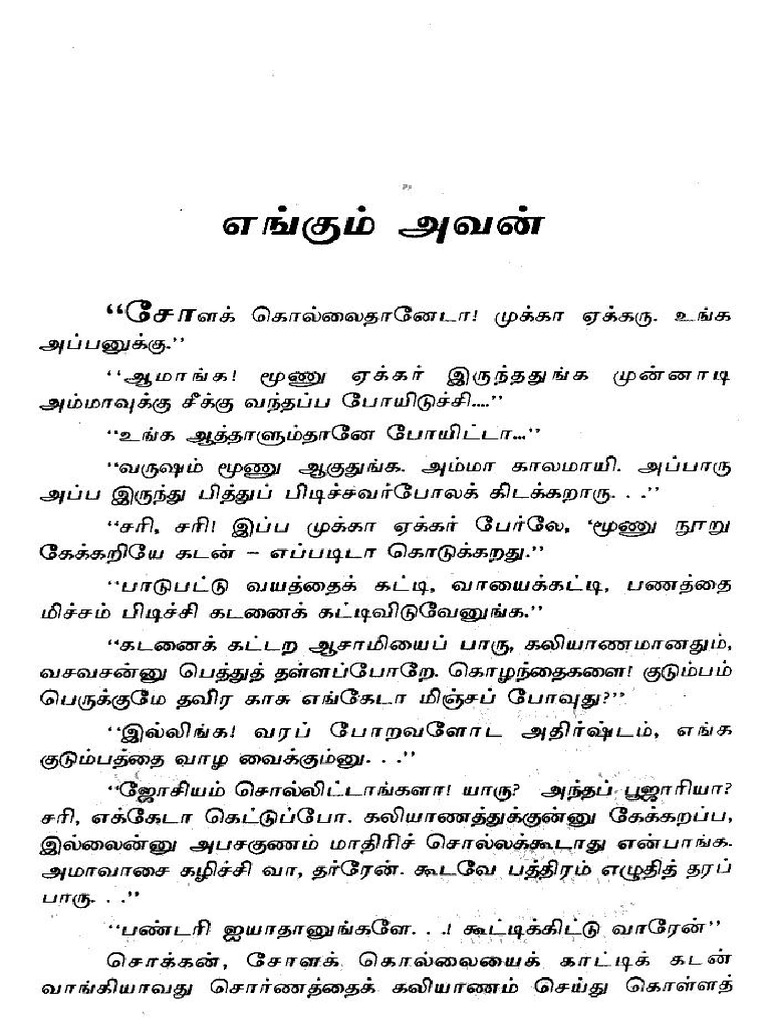 எங்கும் அவன்
“சோளக் கொல்லைதானேடா! முக்கா ஏக்கரு. உங்க
அப்பனுக்கு.”
“ஆமாங்க! மூணு ஏக்கர் இருந்ததுங்க முன்னாடி
அம்மாவுக்கு சீக்கு வந்தப்ப போயிடுச்சி....”
“உங்க ஆத்தாளும்தானே போயிட்டா...”
“வருஷம் மூணு ஆகுதுங்க. அம்மா காலமாயி. அப்பாரு
அப்ப இருந்து பித்துப் பிடிச்சவர்போலக் கிடக்கறாரு. . .”
“சரி, சரி! இப்ப முக்கா ஏக்கர் பேர்லே, ‘மூணு நூறு
கேக்கறியே கடன் – எப்படிடா கொடுக்கறது.”
“பாடுபட்டு வயத்தைக் கட்டி, வாயைக்கட்டி, பணத்தை
மிச்சம் பிடிச்சி கடனைக் கட்டிவிடுவேனுங்க.”
“கடனைக் கட்டற ஆசாமியைப் பாரு, கலியாணமானதும்,
வசவசன்னு பெத்துத் தள்ளப்போறே. கொழந்தைகளை! குடும்பம்
பெருக்குமே தவிர காசு எங்கேடா மிஞ்சப் போவுது?”
“இல்லிங்க! வரப் போறவளோட அதிர்ஷ்டம், எங்க
குடும்பத்தை வாழ வைக்கும்னு. . .”
“ஜோசியம் சொல்லிட்டாங்களா! யாரு? அந்தப் பூஜாரியா?
சரி, எக்கேடா கெட்டுப்போ. கலியாணத்துக்குன்னு கேக்கறப்ப,
இல்லைன்னு அபசகுணம் மாதிரிச் சொல்லக்கூடாது என்பாங்க.
அமாவாசை கழிச்சி வா, தர்ரேன். கூடவே பத்திரம் எழுதித் தரப்
பாரு. . .”
“பண்டரி ஐயாதானுங்களே. . .! கூட்டிக்கிட்டு வாரேன்”
சொக்கன், சோளக் கொல்லையைக் காட்டிக் கடன்
வாங்கியாவது சொர்ணத்தைக் கலியாணம் செய்து கொள்ளத்